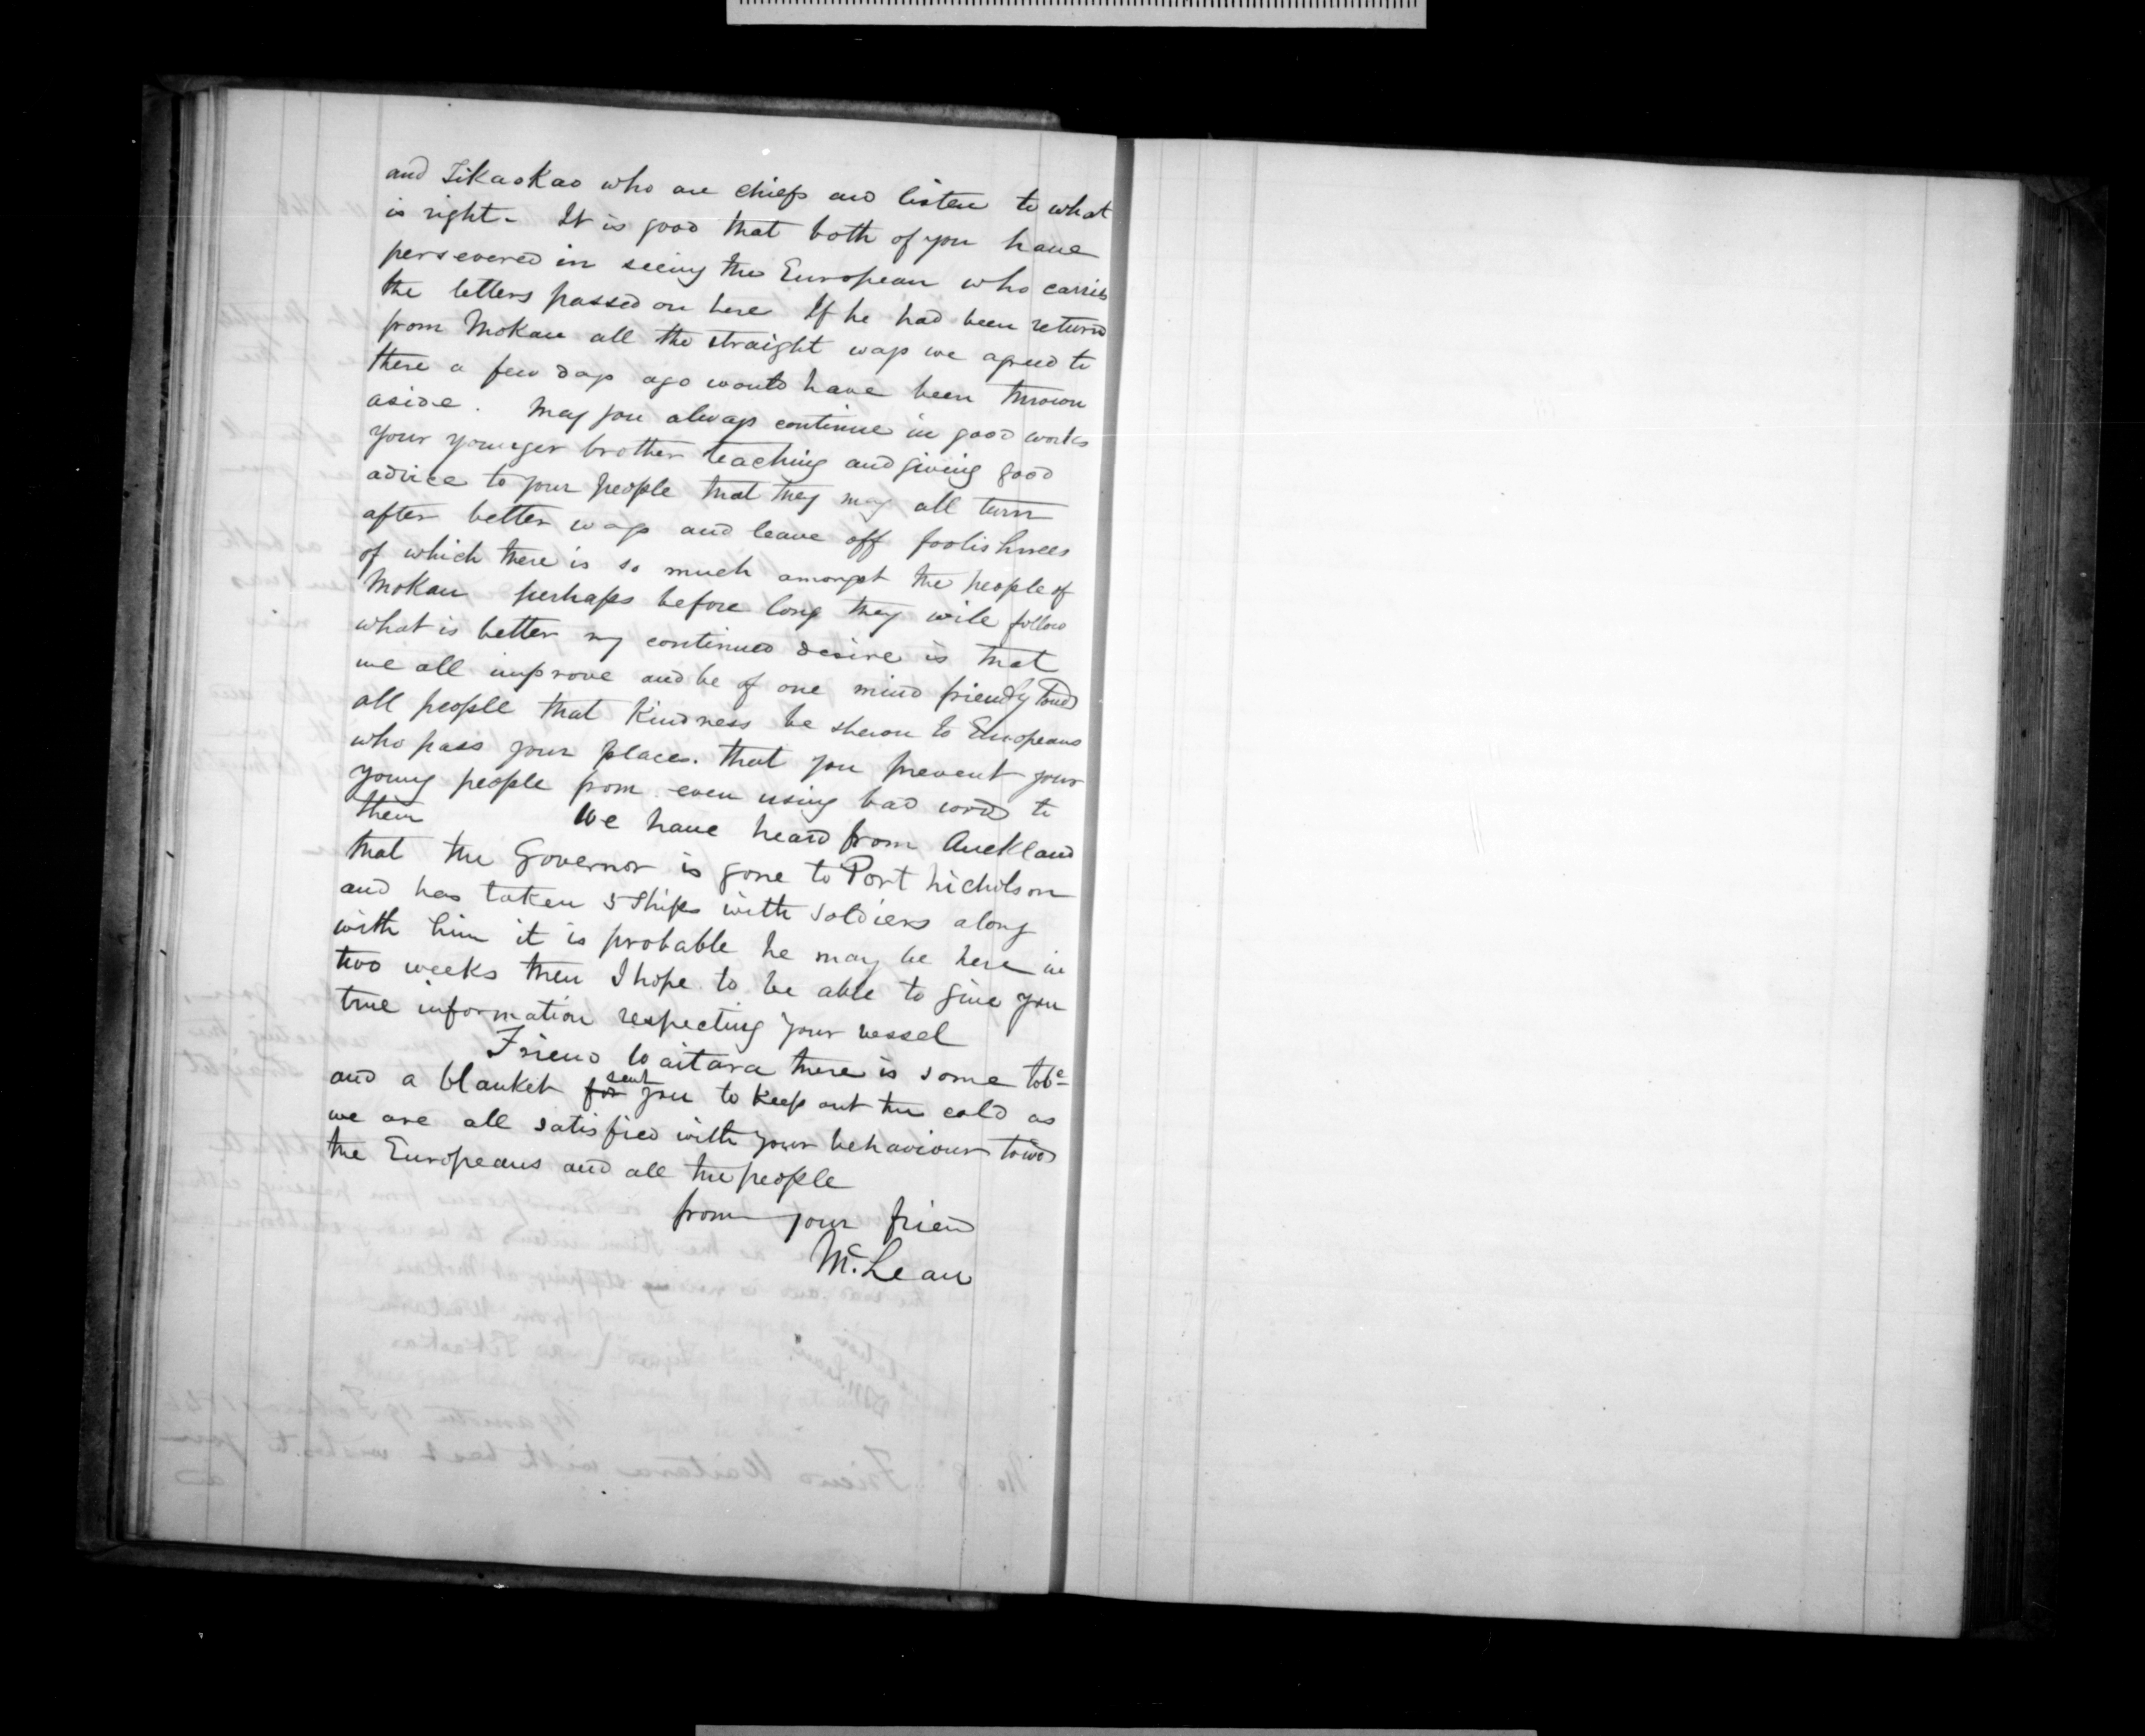 and Tikaokao who are chiefs and listen to what
is right - It is good that both of you have
persevered in seeing the European who carries
the letters passed on here If he had been returnd
from Mokau all the straight ways we agreed to
there a few days ago would have been thrown
aside. May you always continue in good works
your younger brother teaching and giving good
advice to your people that they may all turn
after better ways and leave off foolishness
of which there is so much amongst the people of
Mokau perhaps before long they will follow
what is better my continued desire is that
we all improve and be of one mind friendly towd
all people that Kindness be shewn to Europeans
who pass your places. that you prevent your
young people from even using bad words to
them We have heard from Auckland
that the Governor is gone to Port Nicholson
and has taken 5 ships with soldiers along
with him it is probable he may be here in
two weeks then I hope to be able to give you
true information respecting your vessel
Friend Waitara there is some tobc
and a blanket for sent you to keep out the cold as
we are all satisfied with your behaviour towd
the Europeans and all the people
from your friend
McLean